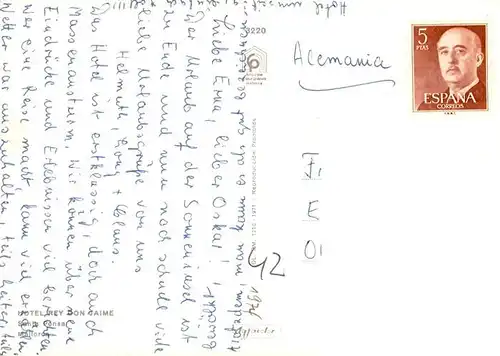 Liebe Erna, lieber Oskar!
Der Urlaub auf der Sonneninsel ist
zu Ende und nun noch schnell
liebe Urlaubsgrüße von uns
Helmuth, + Claus.
Das Hotel ist erstklassig, doch auch
Massenansturm. Wir können über
Eindrücke und Erlebnissen viel berichten.
Wer eine Reise macht, kann viel erzählen.
Wetter war auszuhalten, teils heiter, teils
trotzdem, man kann es als gut bezeichnen
Hotel
Alemania
5
PTAS
ESPAÑA
CORREOS
3220
42
1971
HOTEL REY DON JAIME
Santa Ponsa
Mallorca